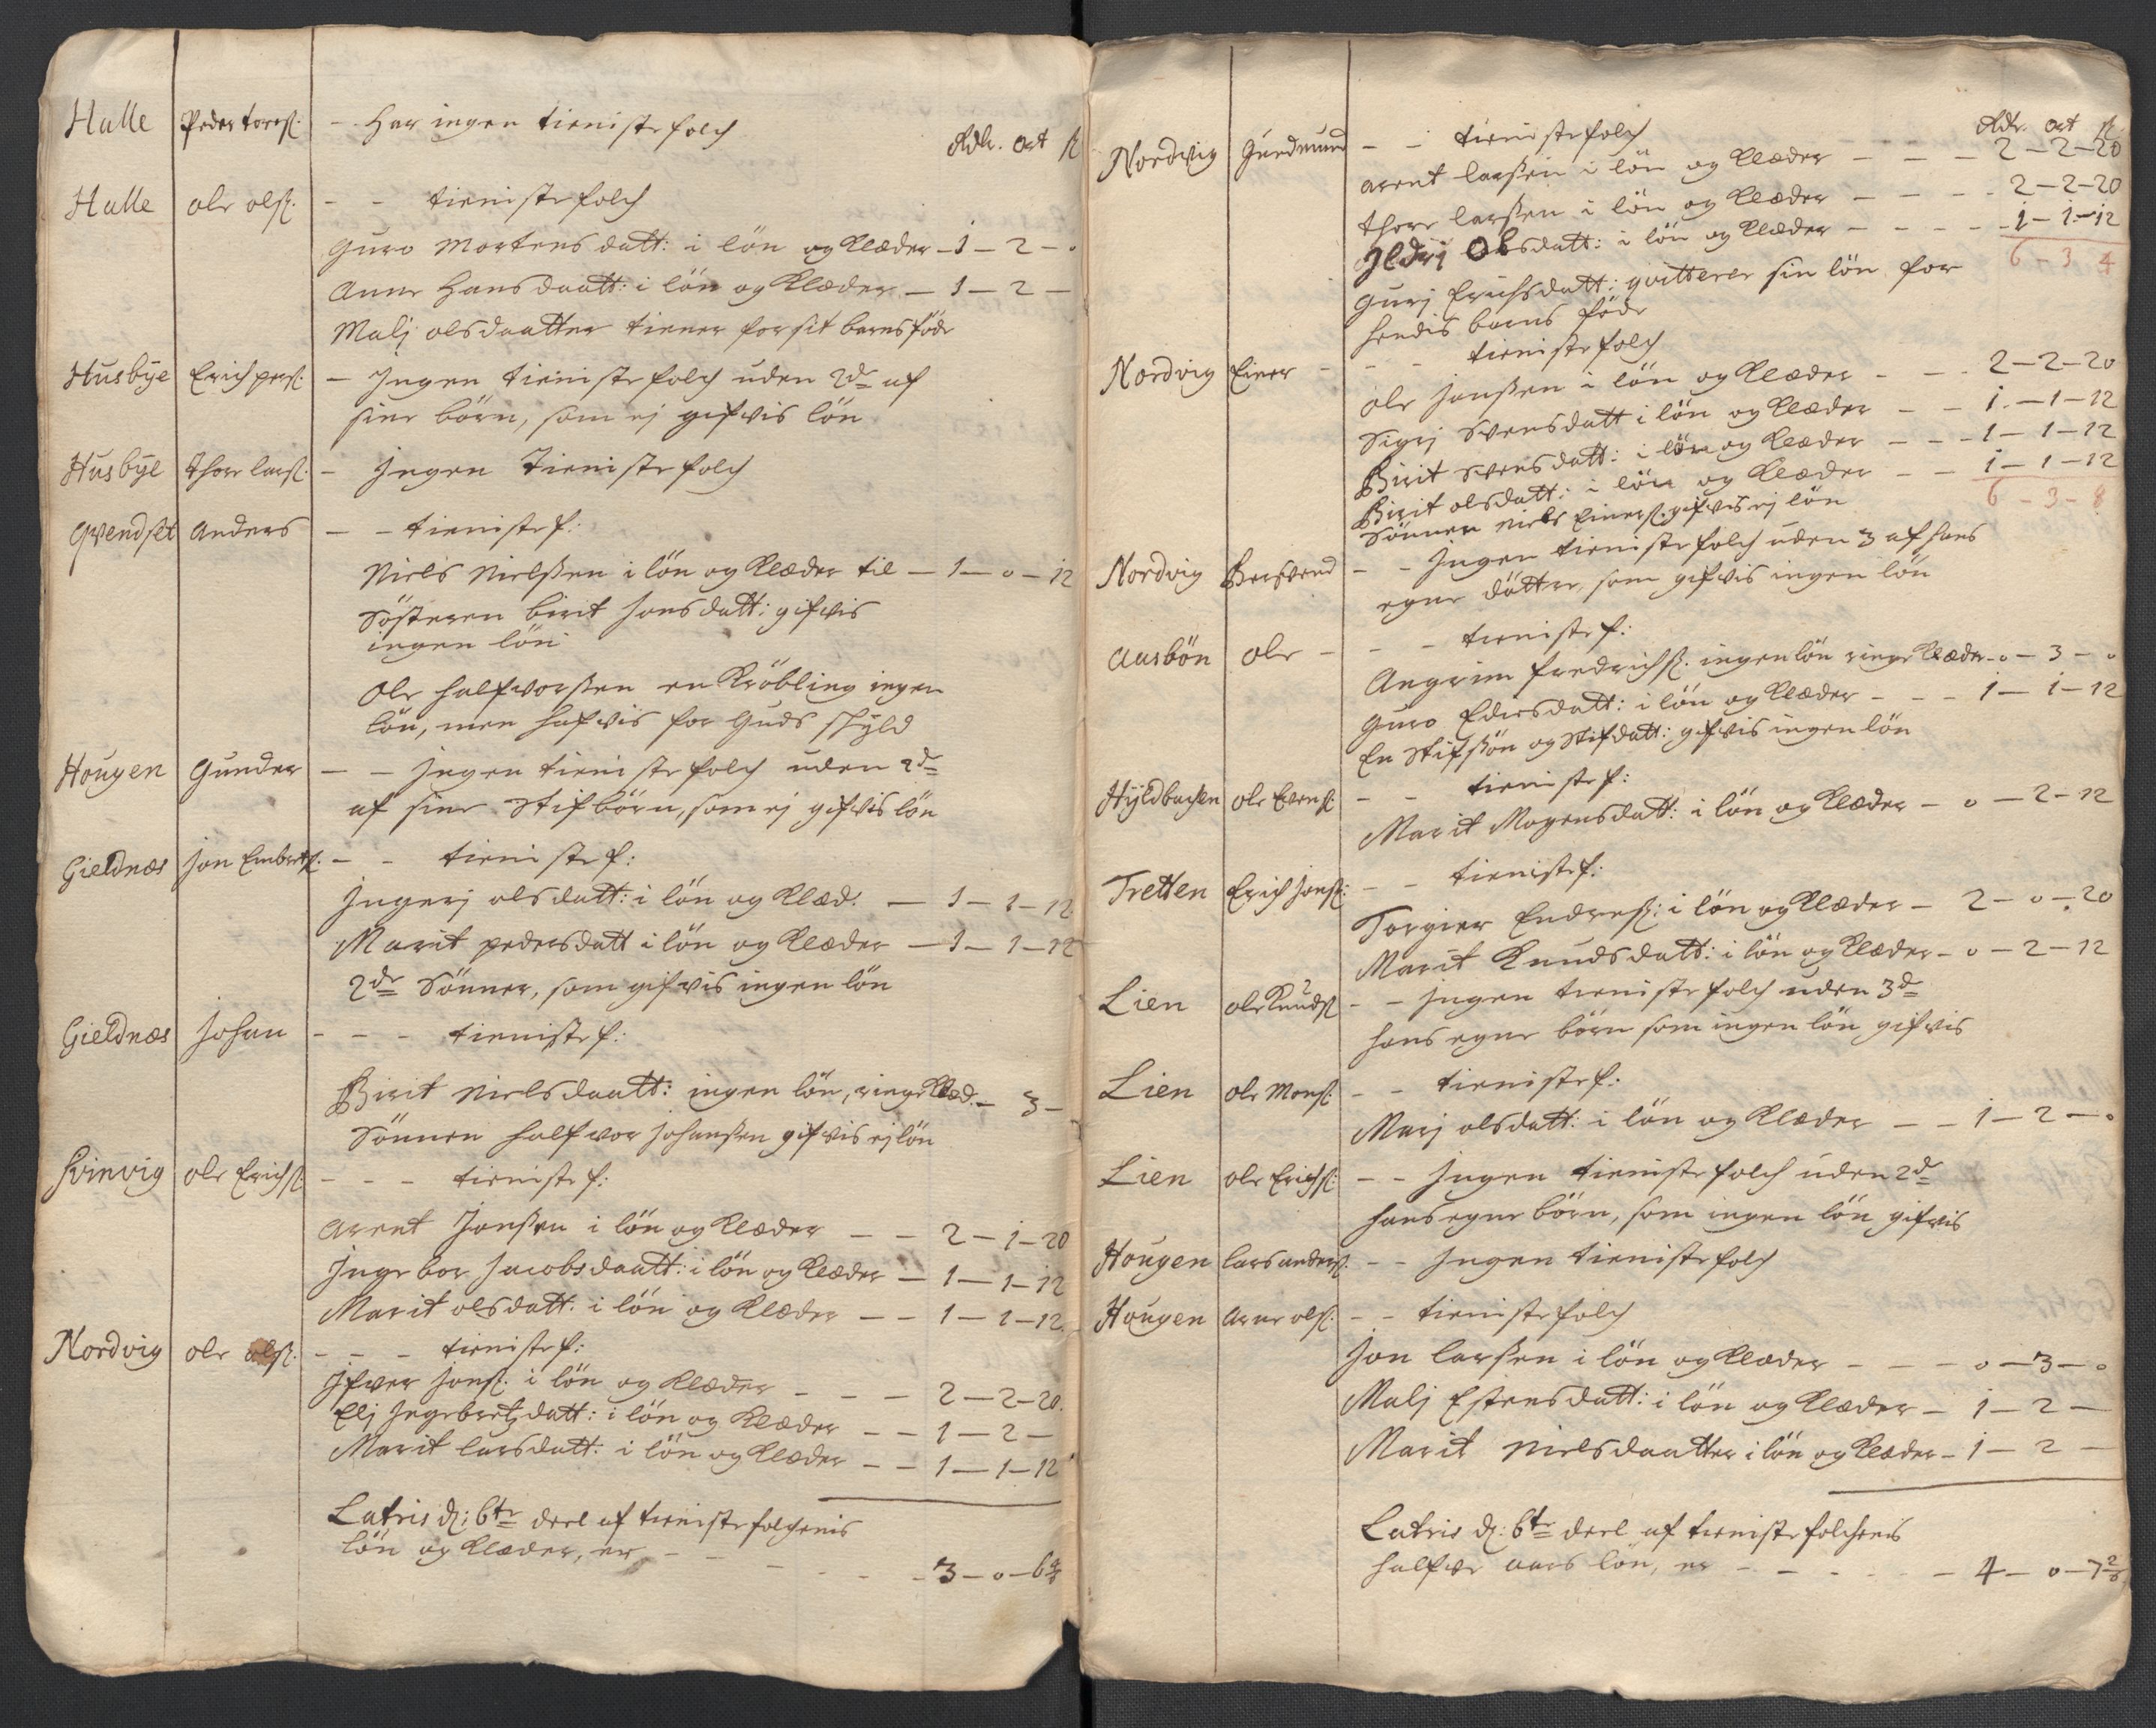 Halle Peder torß: - Har ingen tieniste folch
Rdlr. ort ß
Halle ole olß: - - tieniste folch
Guro Mortens datt: i lön og Klæder - 1 - 2 - 0
Anne Hans daatt: i lön og Klæder - 1 - 2 -
Malj olsdaatter tiener for sit barns föde
Husbye Erich perß: - Ingen tieniste folch uden 2de af
sine börn, som ej gifvis lön
Husbye Thore larß: - Ingen Tieniste folch
Qvendset Anders - - tieniste f:
Niels Nielßen i lön og Klæder til - 1 - 0 - 12
Sösteren birit Jonsdatt: gifvis
ingen lön
Ole halfvorßen en Kröbling ingen
lön, men hafvis for Guds skyld
Hougen Gunder - - Ingen tieniste folch uden 2de
af sine Stifbörn, som ej gifvis lön
Gieldnæs Jon Embretß: - - tieniste f:
Ingerj olsdatt: i lön og Klæd: - 1 - 1 - 12
Marit pedersdatt i lön og Klæder - 1 - 1 - 12
2de Sönner, som gifvis ingen lön
Gieldnæs Johan - - - tieniste f:
Birit Nielsdaatt: ingen lön, ringe Klæd. - 3 -
Sönnen halfvor Johanßen gifvis ej lön
Svinvig ole Erichß: - - - tieniste f:
Arent Jonßen i lön og Klæder - - 2 - 1 - 20
Ingebor Jacobsdaatt: i lön og Klæder - 1 - 1 - 12
Marit olsdatt: i lön og Klæder - - 1 - 1 - 12
Nordvig ole olß: - - - tieniste f:
Ifver Jonß: i lön og Klæder - - - 2 - 2 - 20.
Elj Ingebretzdatt: i lön og Klæder - - 1 - 2 -
Marit larsdatt: i lön og Klæder - - 1 - 1 - 12
Latris d: 6te deel af tieniste folchenis
lön og Klæder, er - - - - - 3 - 0 - 6 4/6
Rdr. ort ß
Nordvig Gudmund - - tieniste folch
arent larßen i lön og Klæder - - - 2 - 2 - 20
Thore larßen i lön og Klæder - - - 2 - 2 - 20
Ildrj Olsdatt: i lön og Klæder - - - - 1 - 1 - 12
6 - 3 4
Gurj Erichsdatt: qvitterer sin lön for
hendis barns föde
Nordvig Einer - - - tieniste folch
ole Jonßen i lön og Klæder - - - 2 - 2 - 20
Sigrj Svensdatt i lön og Klæder - - 1 - 1 - 12
Birit Svensdatt: i lön og Klæder - - - 1 - 1 - 12
Birit olsdatt: i lön og Klæder - - 1 - 1 - 12
6 - 3 - 8
Sönnen Niels Einerß: gifvis ej lön
Nordvig Bersvend - - Ingen tieniste folch uden 3 af hans
egne döttre, som gifvis ingen lön
Aasbön ole - - - tieniste f:
Angrim fredrichß: ingen lön ringe Klæder - 0 - 3 - 0
Guro Edersdatt: i lön og Klæder - - - 1 - 1 - 12
En Stifsön og Stifdatt: gifvis ingen lön
Hyldbachen ole Evenß: - - tieniste f:
Marit Mogensdatt: i lön og Klæder - 0 - 2 - 12
Tretten Erich Jonß: - - tieniste f:
Torgier Endreß: i lön og Klæder - 2 - 0 - 20
Marit Knudsdatt: i lön og Klæder - 0 - 2 - 12
Lien ole Knudß - - Ingen tieniste folch uden 3de
hans egne börn som ingen lön gifvis
Lien ole Monß: - - tieniste f:
Marj olsdatt: i lön og Klæder - - 1 - 2 - 0
Lien ole Erichß: - - Ingen tieniste folch uden 2de
hans egne börn, som ingen lön gifvis
Hougen lars anderß: - - Ingen tieniste folch
Hougen Arne olß: - - tieniste folch
Jon larßen i lön og Klæder - - - 0 - 3 - 0
Malj Estensdatt: i lön og Klæder - 1 - 2 -
Marit Nielsdaatter i lön og Klæder - 1 - 2 -
Latris d: 6te deel af tieniste folchenis
halfve aars lön, er - - - - - 4 - 0 - 7 2/6